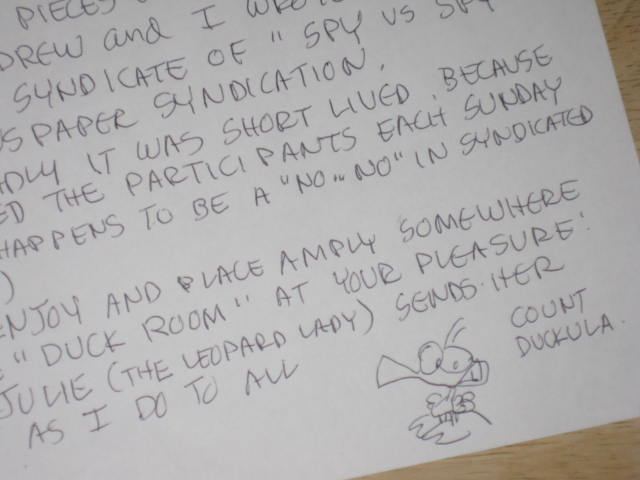 PIECES
DREW and I WROTE
SYNDICATE OF "SPY VS SPY
SPAPER SYNDICATION.
IT WAS SHORT LIVED BECAUSE
ED THE PARTICIPANTS EACH SUNDAY
HAPPENS TO BE A "NO...NO" IN SYNDICATED
)
ENJOY AND PLACE AMPLY SOMEWHERE
"DUCK ROOM" AT YOUR PLEASURE!
JULIE (THE LEOPARD LADY) SENDS HER
AS I DO TO ALL
COUNT
DUCKULA.